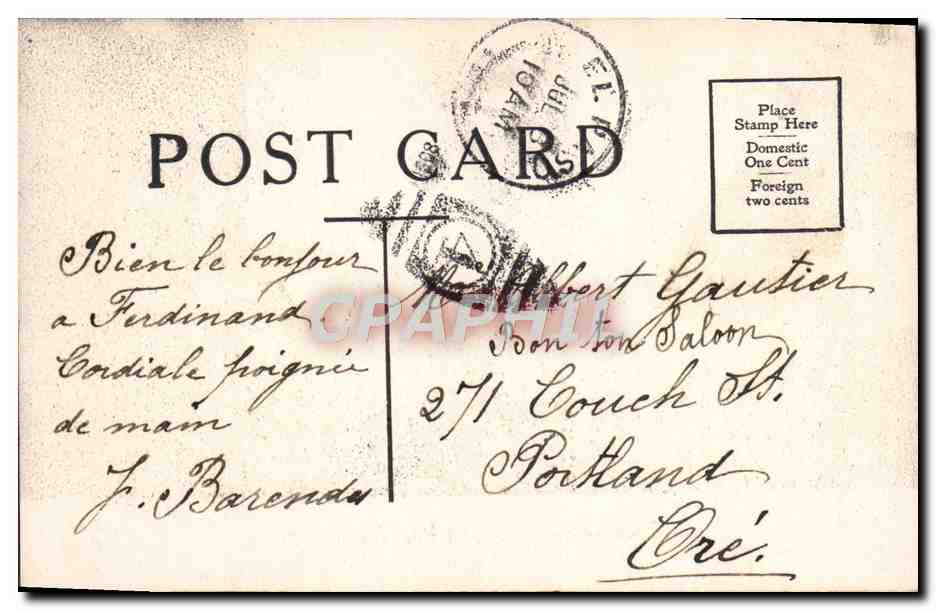 POST CARD
EL PASO
JUL
10 AM
Place
Stamp Here
Domestic
One Cent
Foreign
two cents
4
Bien le bonjour
a Ferdinand
Cordiale poignée
de main
J. Barendes
Albert Gautier
Bon ton Saloon
271 Couch St.
Portland
Oré.
CPAPHIL